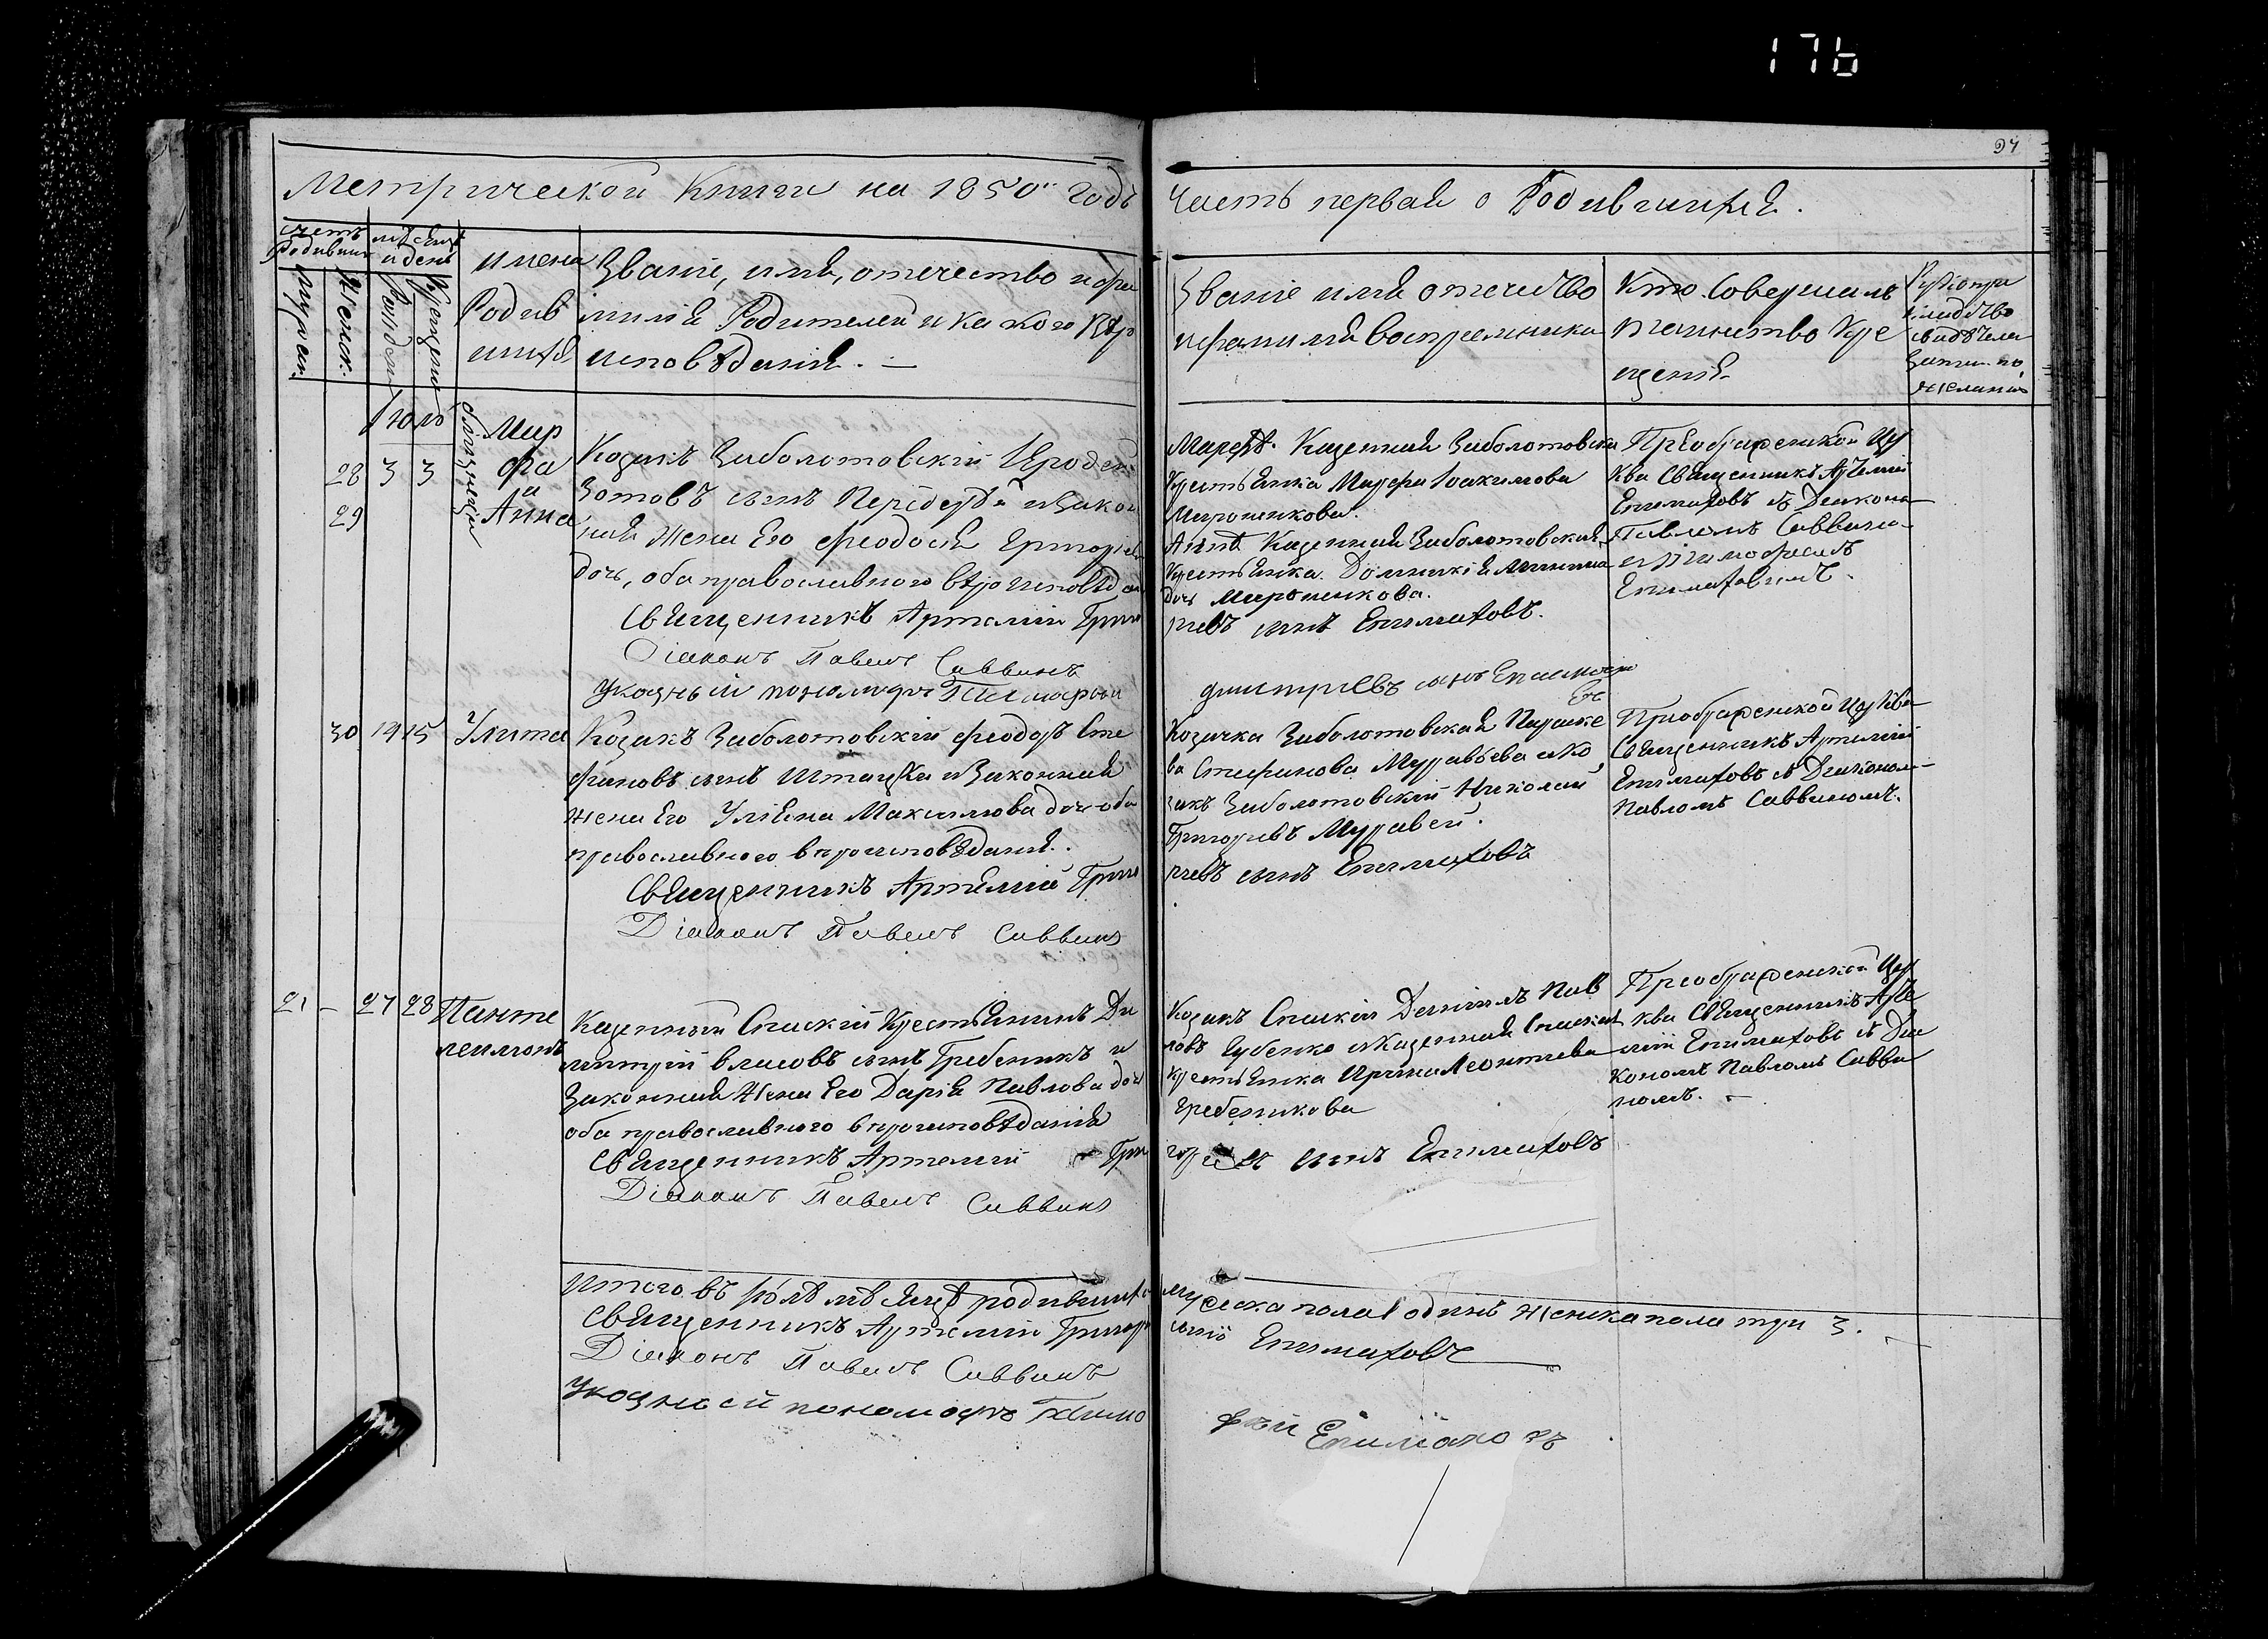 176
94
Метрической Книги на 1850й Годъ
Часть первая о Родившихся.
счетъ Родивших
мѣсяцъ и день
имена Родив шихся
мужеск.
Женск.
Рожденія
Крещенія
Званіе, имя, отечество и фа
милія Родителей и какого Вѣро
исповѣданія. —
Званіе имя отечество
и фамилія воспріемника
Кто совершалъ
таинство Кре
щенія
по
желанію
Іюль
28 3 3
29
близнецы
Мар
фа
и
Анна
Козакъ Заболотовскій
Зотовъ сынъ и закон
ная Жена Его Феодосія Григорі
дочь, оба православнаго вѣроисповѣдан
Священникъ Артемій Григо
Діаконъ Павелъ Саввинъ
Указный пономарь Тимофей
Марфѣ Казенная Заболотовска
Крестьянка Марфа Іоакимова
Мирошенкова.
Аннѣ Казенная Заболотовская
Крестьянка Домникія
дочь Мирошенкова.
рьевъ сынъ Епимаховъ.
Димитріевъ сынъ
Преображенской Цер
кви Священникъ Артемій
Епимаховъ съ Диакона
Павломъ Саввино
Епимаховымъ.
30 14 15 Улита
Козакъ Заболотовскій Феодоръ Сте
фановъ сынъ и законная
жена Его Уліяна Максимова дочь оба
православнаго вѣроисповѣданія.
Священникъ Артемій Григо
Діаконъ Павелъ Саввинъ
Козачка Заболотовская Параске
ва Стефанова Муравьева и Ко
закъ Заболотовскій Николай
Григорьевъ Муравей.
рьевъ сынъ Епимаховъ
Преображенской Церкви
Священникъ Артемій
Епимаховъ съ Диакономъ
Павломъ Саввиномъ.
21 — 27 28 Панте
леимонъ
Казенный Спаскій Крестьянинъ Ди
митрій Власовъ сынъ Гребеникъ и
Законная Жена Его Дарія Павлова дочь
оба православнаго вѣроисповѣданія
Священникъ Артемій Гри
Діаконъ Павелъ Саввинъ
Козакъ Спаскій Даніилъ Пав
ловъ Губенко и Казенная Спаская
крестьянка Ирина Леонтіева
Гребеникова
горьевъ сынъ Епимаховъ
Преображенской Цер
кви Священникъ Арте
мій Епимаховъ съ Диа
кономъ Павломъ Савви
номъ. —
Итого въ Іюлѣ мѣсяцѣ родившихся
мужеска пола 1 одинъ Женска пола три 3.
Священникъ Артемій Григорь
Епимаховъ
Діаконъ Павелъ Саввинъ
Указный пономарь Тимо
фей Епимаховъ